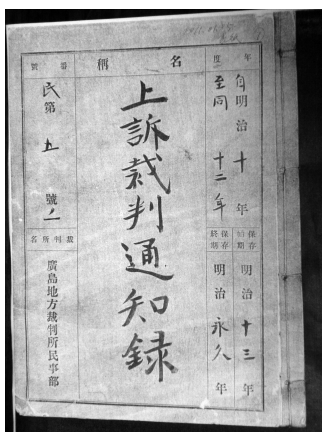 年度
自明治十年
至同十二年
保存始期
明治十三年
保存終期
明治永久年
名稱
上訴裁判通知録
番號
民第五號ノ一
裁判所名
廣島地方裁判所民事部